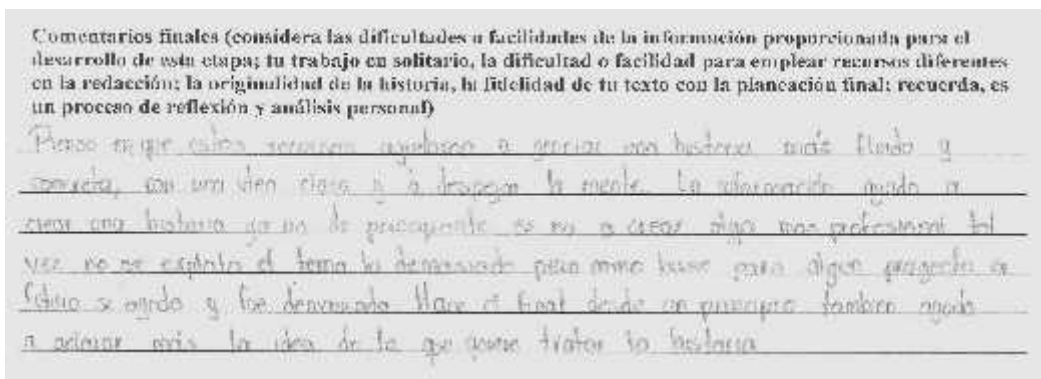 Comentarios finales (considera las dificultades o facilidades de la información proporcionada para el
desarrollo de esta etapa; tu trabajo en solitario, la dificultad o facilidad para emplear recursos diferentes
en la redacción; la originalidad de la historia, la fidelidad de tu texto con la planeación final; recuerda, es
un proceso de reflexión y análisis personal)
Pienso en que estos recursos ayudaron a generar una historia más fluida y
correcta, con una idea clara y a despejar la mente. La información ayuda a
crear una historia ya no de principiante es no a crear algo mas profesional tal
vez no se explota el tema lo demasiado pero como base para algun proyecto a
futuro se ayuda y fue demasiado Hace el final desde un principio tambien ayuda
a aclarar más la idea de lo que quiere tratar la historia